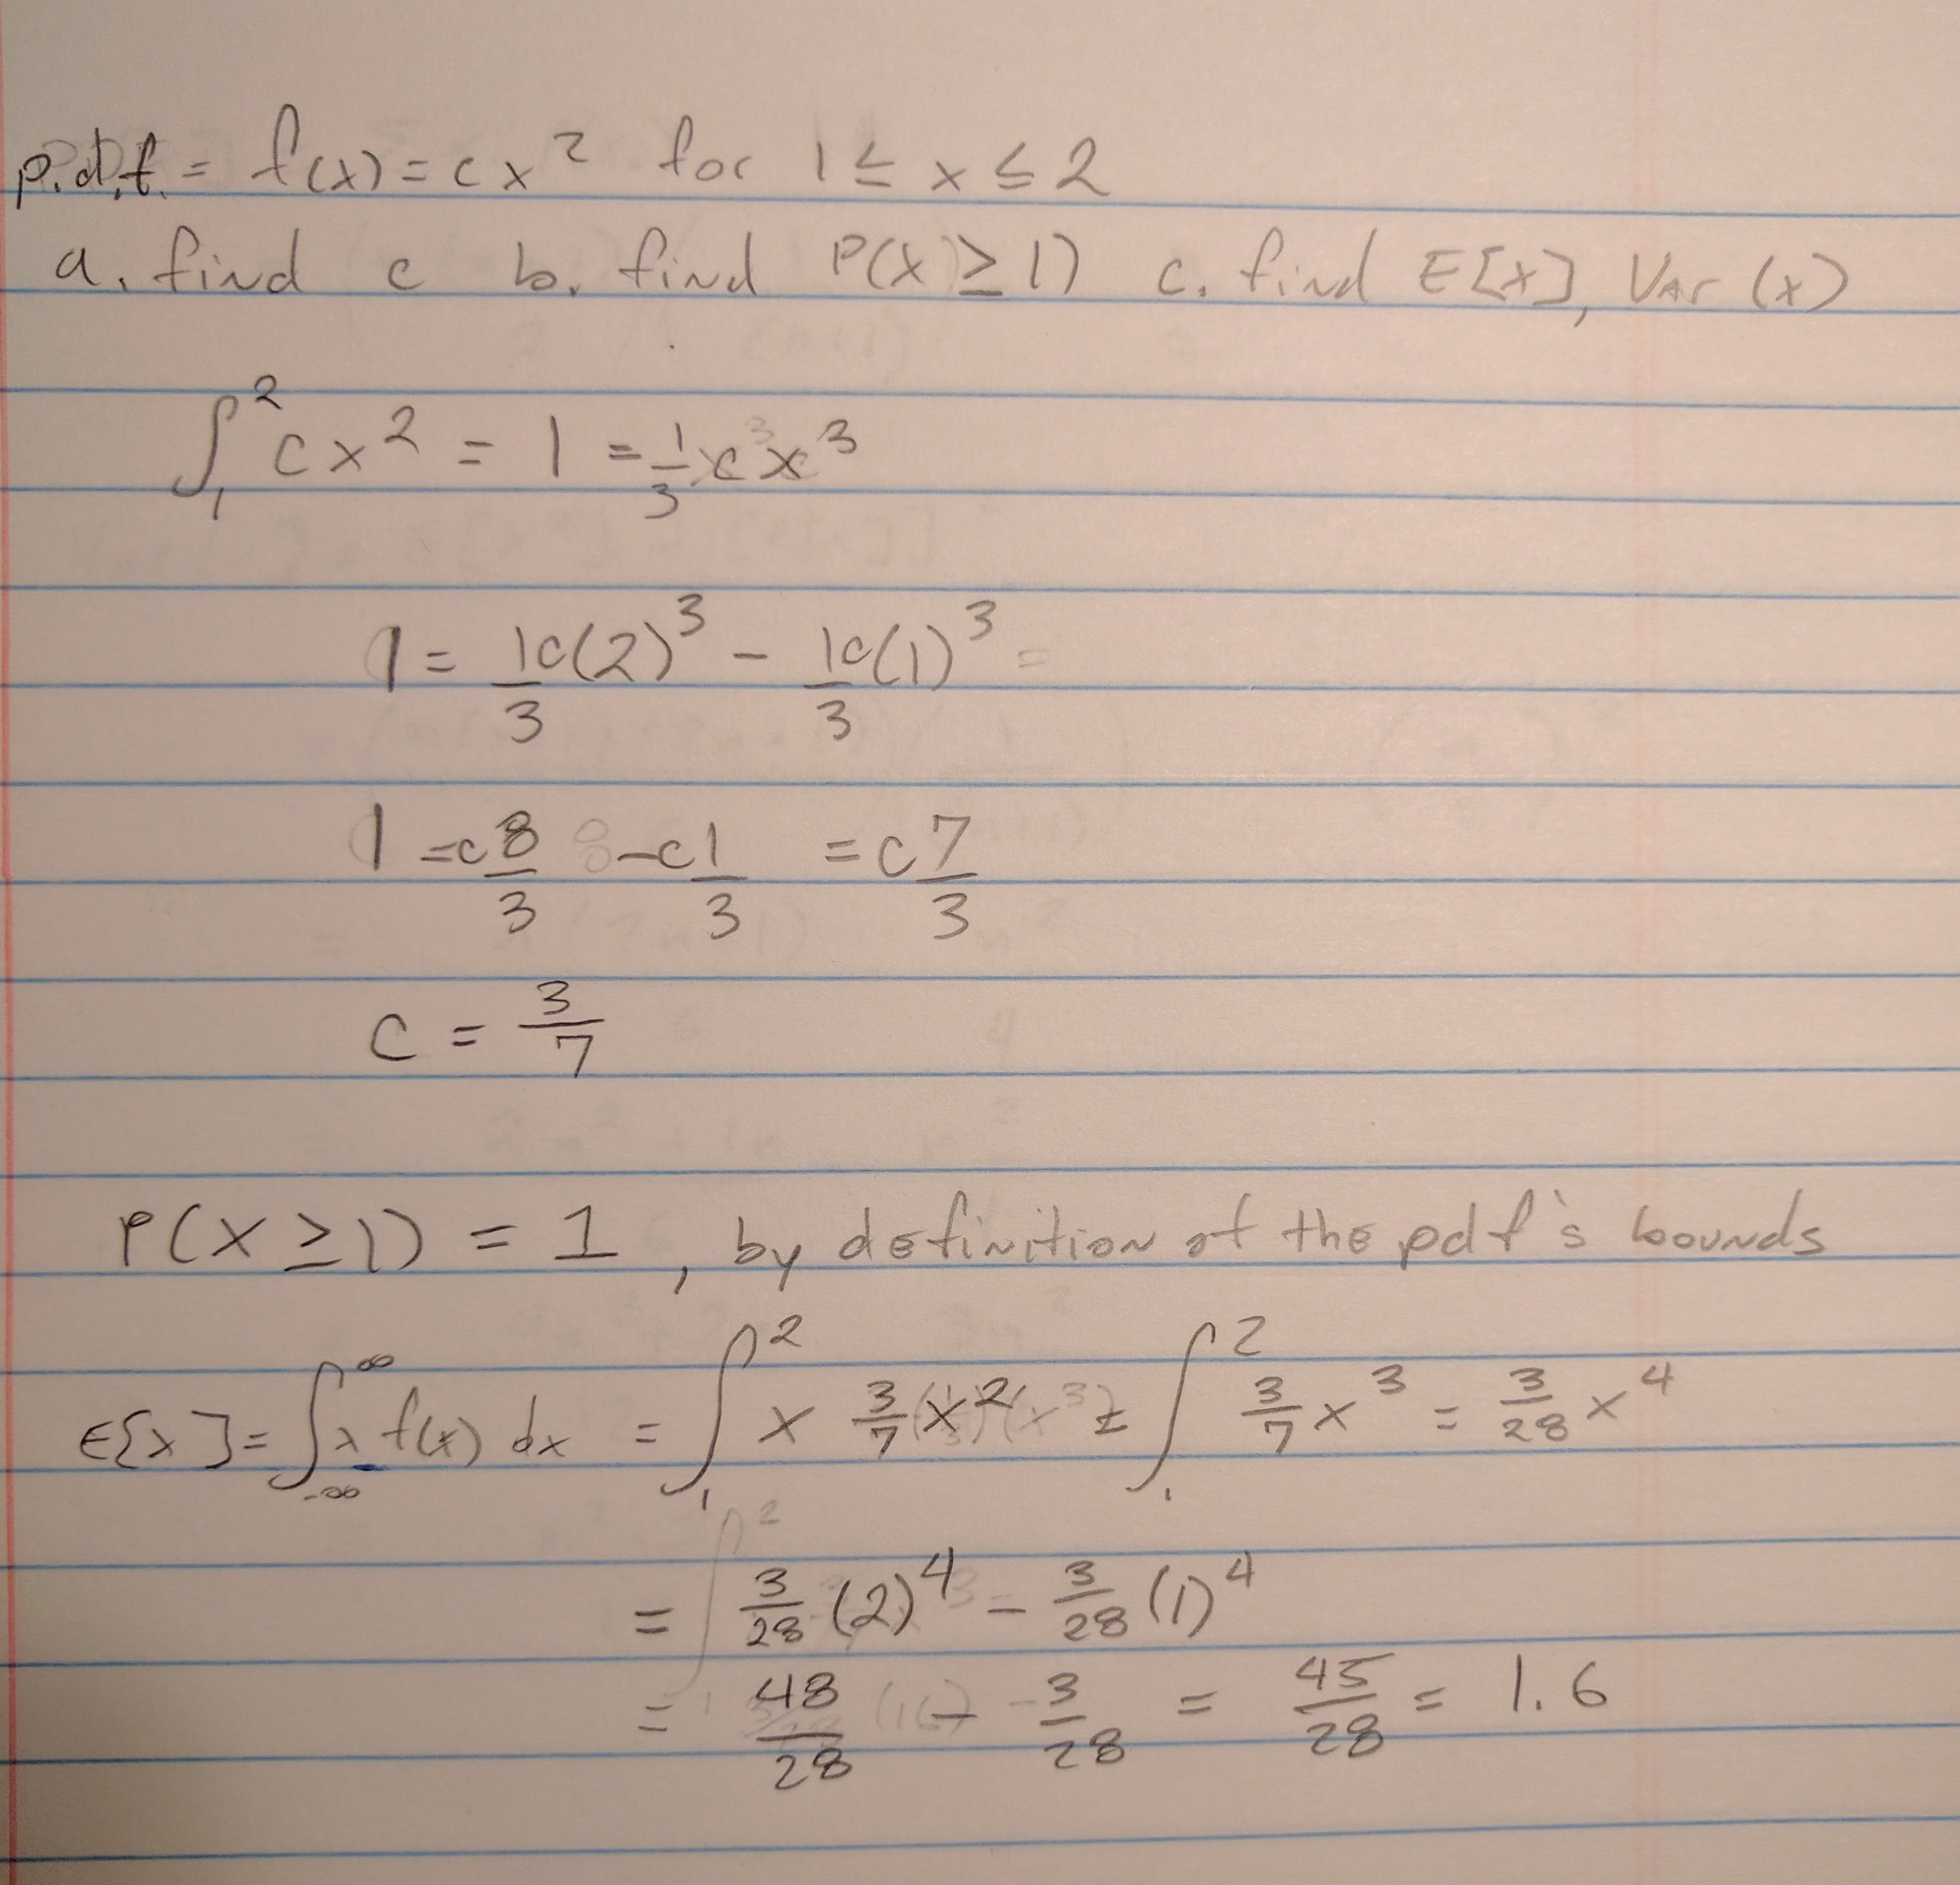 p.d.f. = f(x) = cx² for 1 ≤ x ≤ 2
a. find c b. find P(X ≥ 1) c. find E[x], Var(x)
∫₁² cx² = 1 = 1/3 cx³
1 = 1/3 c(2)³ - 1/3 c(1)³ =
1 = c 8/3 - c 1/3 = c 7/3
c = 3/7
P(X ≥ 1) = 1, by definition of the pdf's bounds
E[x] = ∫_{-∞}^{∞} x f(x) dx = ∫₁² x 3/7 x² = ∫₁² 3/7 x³ = 3/28 x⁴
= 3/28 (2)⁴ - 3/28 (1)⁴
= 48/28 - 3/28 = 45/28 = 1.6